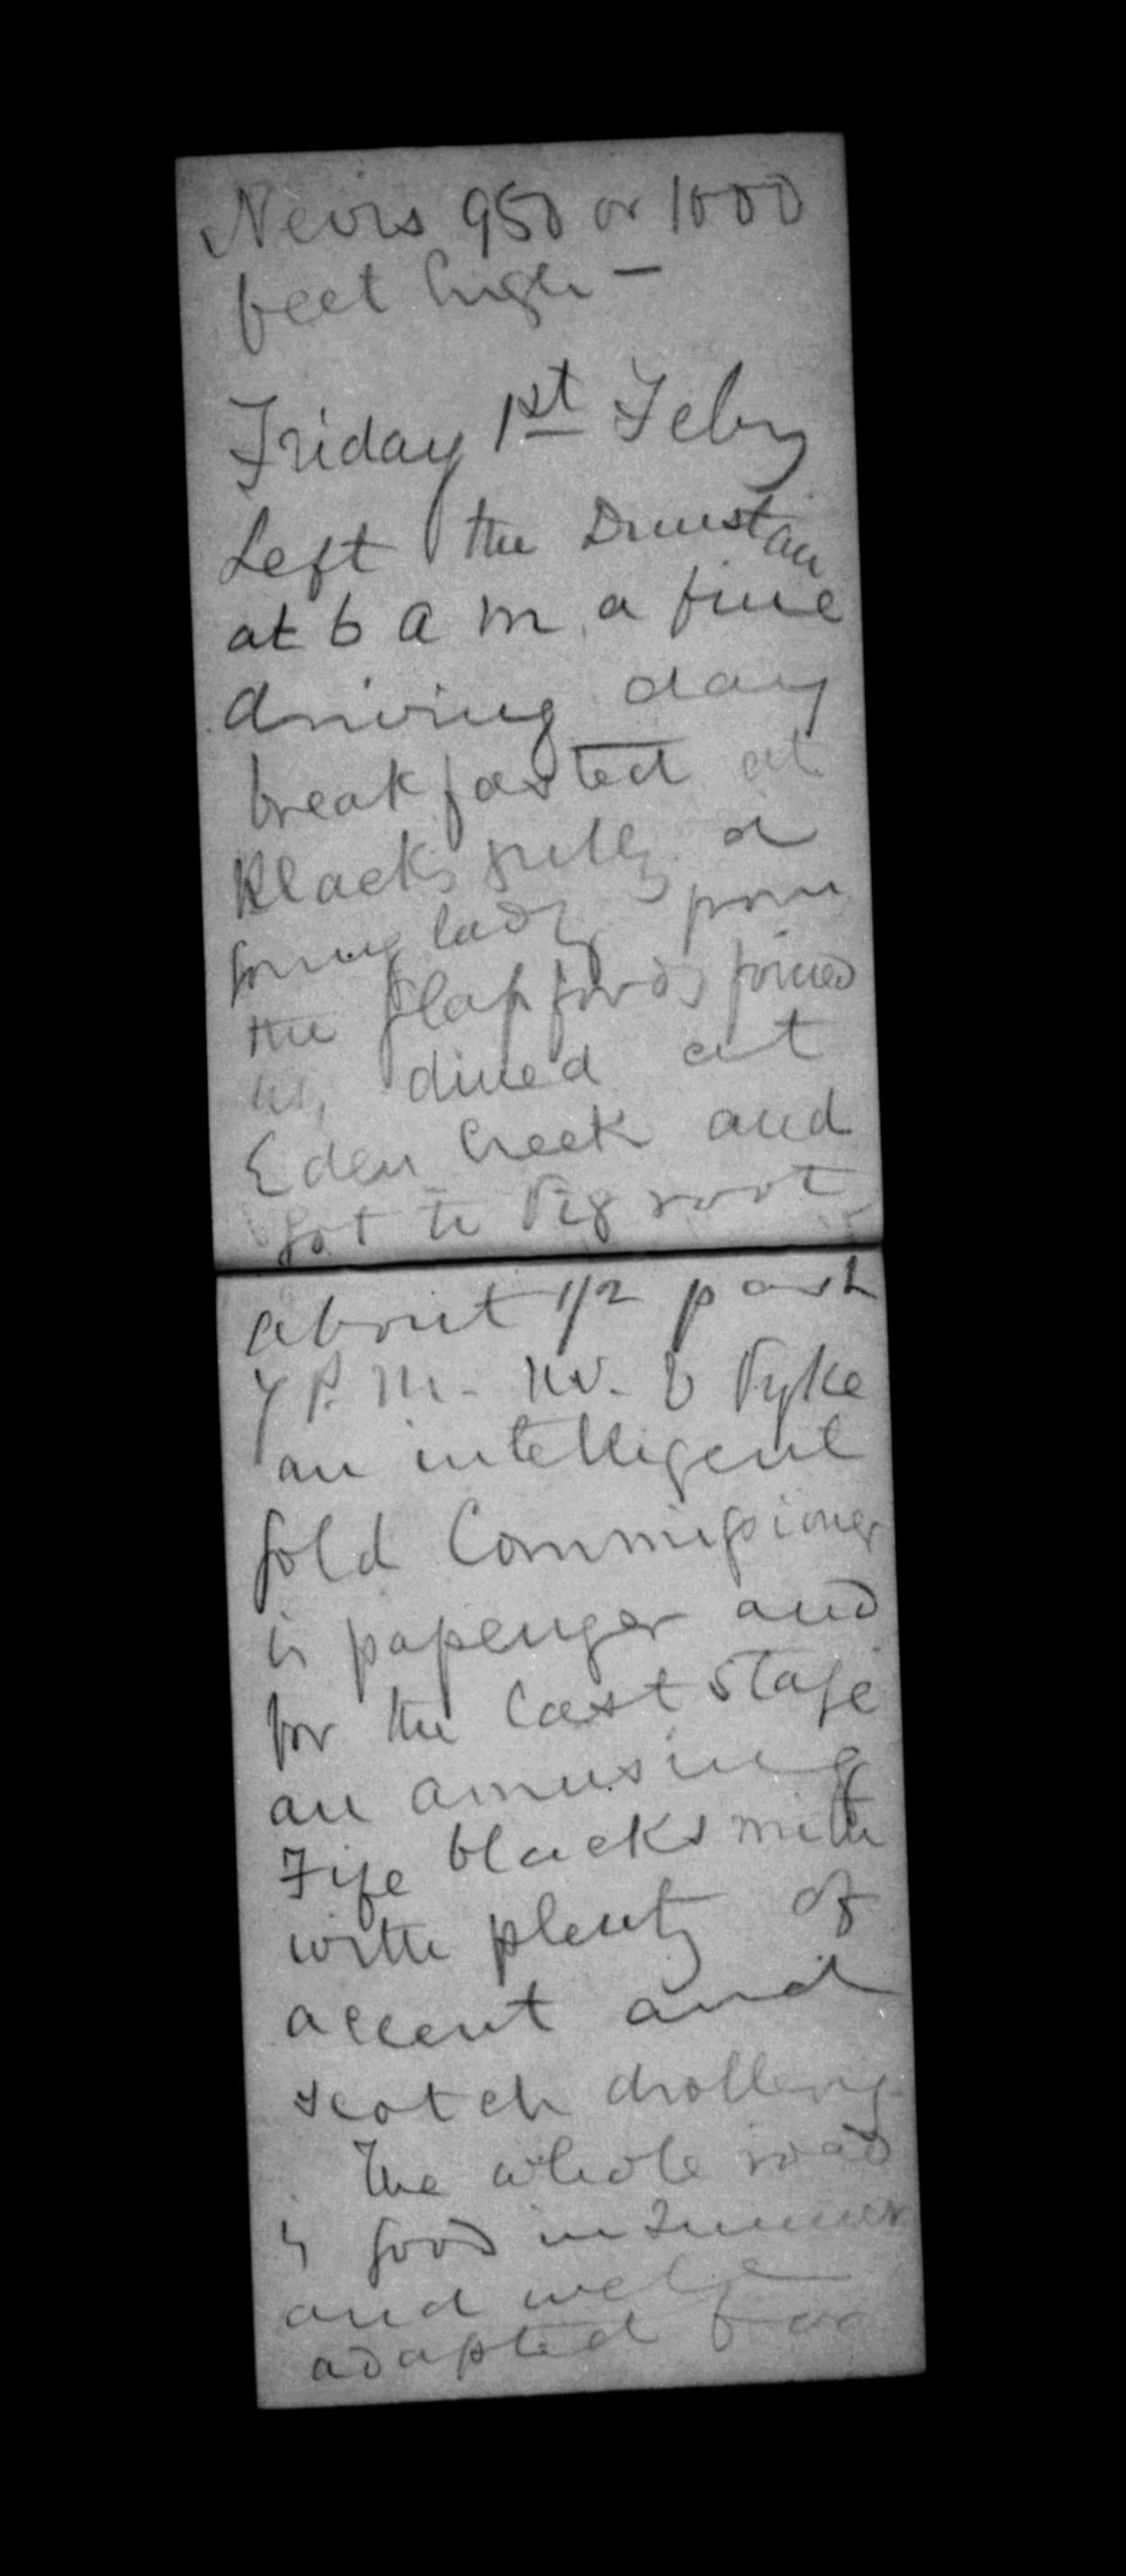 Nevis 950 or 1000
feet high —
Friday 1st Feby
Left the Dunstan
at 6 a m. a fine
driving day
breakfasted at
Blacks gully a
young lady from
the joined
us, dined at
Eden Creek and
got to Pig root
about 1/2 past
7 P. M. Mr. Pyke
an intelligent
Gold Commissioner
is passenger and
for the last stage
an amusing
Fife blacksmith
with plenty of
accent and
scotch drollery
The whole road
is good in summer
and well
adapted for